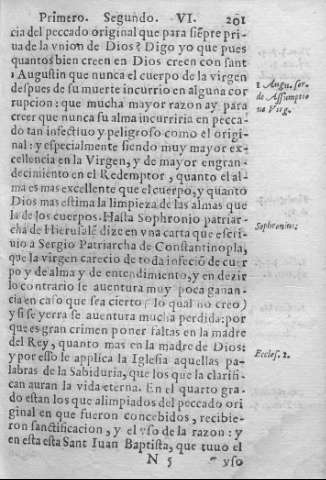 Primero. Segundo. VI. 201
cia del peccado original que para siẽpre pri-
ua de la vnion de Dios? Digo yo que pues
quantos bien creen en Dios creen con sant
1 Augustin que nunca el cuerpo de la virgen
despues de su muerte incurrio en alguna cor
rupcion: que mucha mayor razon ay para
creer que nunca su alma incurriria en pecca-
do tan infectiuo y peligroso como el origi-
nal: y especialmente siendo muy mayor ex-
cellencia en la Virgen, y de mayor engran-
decimiento en el Redemptor, quanto el al-
ma es mas excellente que el cuerpo, y quanto
Dios mas estima la limpieza de las almas que
la de los cuerpos. Hasta Sophronio patriar-
cha de Hierusalẽ dize en vna carta que escri-
uio a Sergio Patriarcha de Constantinopla,
que la virgen carecio de toda infeciõ de cuer
po y de alma y de entendimiento, y en dezir
lo contrario se auentura muy poca ganan-
cia en caso que sea cierto (lo qual no creo)
y si se yerra se auentura mucha perdida: por
que es gran crimen poner faltas en la madre
del Rey, quanto mas en la madre de Dios:
y por esso le applica la Iglesia aquellas pa-
labras de la Sabiduria, que los que la clarifi-
can auran la vida eterna. En el quarto gra-
do estan los que alimpiados del peccado ori
ginal en que fueron concebidos, recibie-
ron sanctificacion, y el vso de la razon: y
en esta esta Sant Iuan Baptista, que tuuo el
N 5 vso
1 Augu. ser.
de Assumptio
ne Virg.
Sophronius;
Eccles. 2.